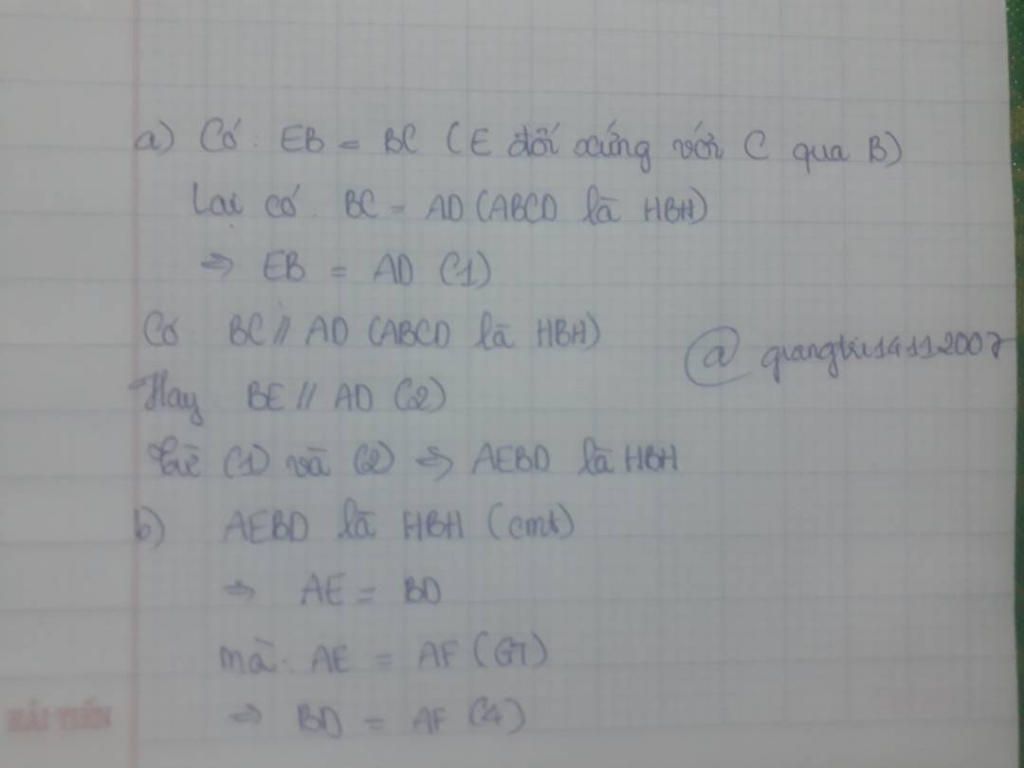 a) Có: EB = BC (E đối xứng với C qua B)
Lại có: BC = AD (ABCD là HBH)
⇒ EB = AD (1)
Có BC // AD (ABCD là HBH)
@
Hay BE // AD (2)
Từ (1) và (2) ⇒ AEBD là HBH
b) AEBD là HBH (cmt)
⇒ AE = BD
mà: AE = AF (GT)
⇒ BD = AF (4)
HẢI TIẾN